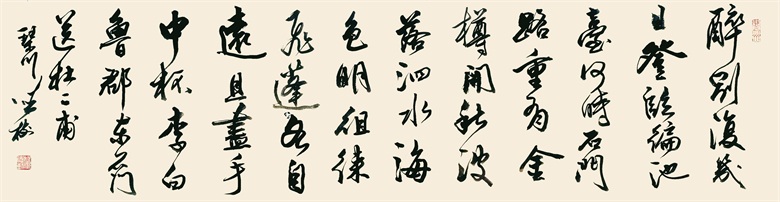 醉別復幾
日登臨徧池
臺何時石門
路重有金
樽開秋波
落泗水海
色明徂徠
飛蓬各自
遠且盡手
中杯李白
魯郡東石門
送杜二甫
琴川